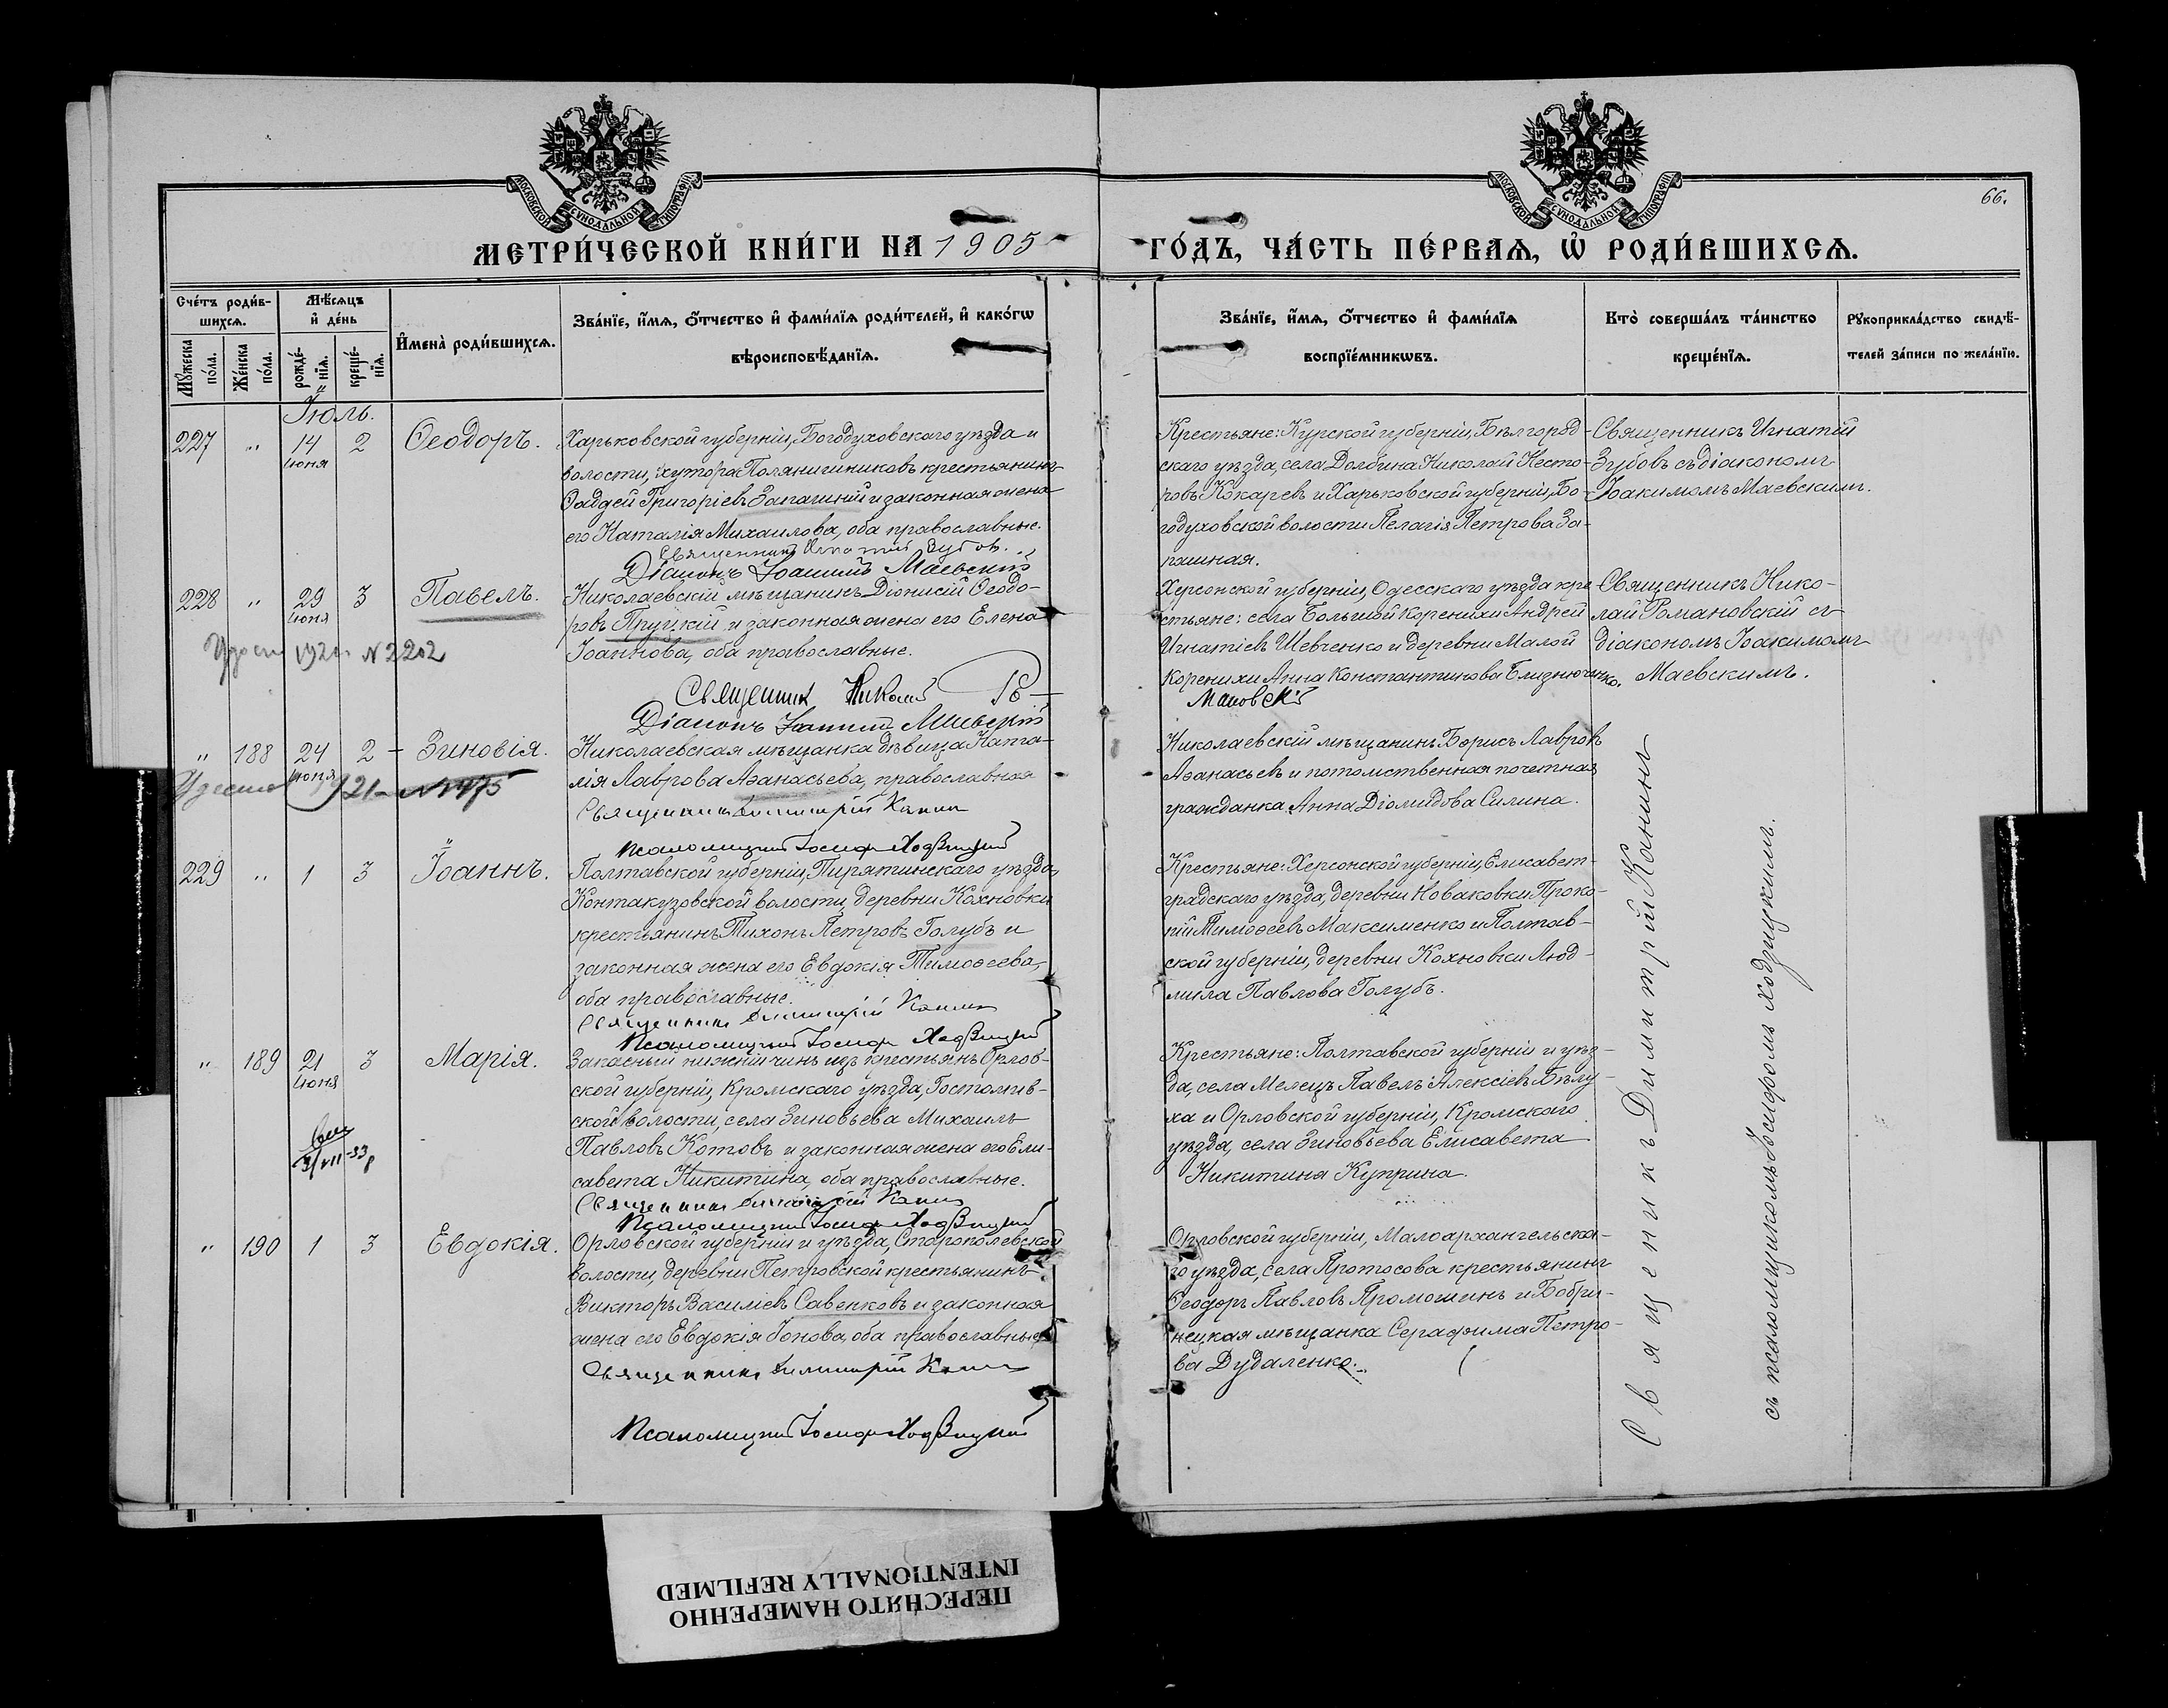 66.
МЕТРИ́ЧЕСКОЙ КНИ́ГИ НА 1905
ГО́ДЪ, ЧА́СТЬ ПЕ́РВАѦ, Ѡ РОДИ́ВШИХСѦ.
Сче́тъ роди́в-
шихсѧ.
Мѣ́сѧцъ
и де́нь
Мꙋ́жеска по́ла.
Же́нска по́ла.
рожде́-нїѧ.
креще́-нїѧ.
И҆мена̀ роди́вшихсѧ.
Зва́нїе, и҆́мѧ, ѻ҆́тчество и҆ фами́лїѧ роди́телей, и҆ како́гѡ
вѣроисповѣ́данїѧ.
Зва́нїе, и҆́мѧ, ѻ҆́тчество и҆ фами́лїѧ
воспрїе́мникѡвъ.
Кто̀ соверша́лъ та́инство
креще́нїѧ.
Рꙋкоприкла́дство свидѣ́-
телей за́писи по жела́нїю.
Іюль.
227 " 14 іюня 2 Ѳеодоръ.
Харьковской губерніи, Богодуховскаго уѣзда и
волости, хутора крестьянинъ
Ѳаддей Григоріевъ и законная жена
его Наталія Михаилова, оба православные.
Священникъ Игнатій Зубовъ.
Діаконъ Іоакимъ Маевскій
Крестьяне: Курской губерніи, Бѣлгород-
скаго уѣзда, села Долбина Николай Несто-
ровъ Кокаревъ и Харьковской губерніи, Бо-
годуховской волости Пелагія Петрова За-
пашная.
Священникъ Игнатій
Зубовъ съ діакономъ
Іоакимомъ Маевскимъ.
228 " 29 іюня 3 Павелъ.
Николаевскій мѣщанинъ Діонисій Ѳеодо-
ровъ и законная жена его Елена
Іоаннова, оба православные.
N 2202
Священник Николай Ро-
мановскій
Діаконъ Іоакимъ Маевскій
Херсонской губерніи, Одесскаго уѣзда кре-
стьяне: села Большой Коренихи Андрей
Игнатіевъ Шевченко и деревни Малой
Коренихи Анна Константинова Близнюченко.
Священникъ Нико-
лай Романовскій съ
діакономъ Іоакимомъ
Маевскимъ.
" 188 24 іюня 2 Зиновія.
Николаевская мѣщанка дѣвица Ната-
лія Лаврова Аѳанасьева, православная
Священникъ Димитрій Канин
Псаломщикъ Іосифъ Ходзицкій
Николаевскій мѣщанинъ Борисъ Лавровъ
Аѳанасьевъ и потомственная почетная
гражданка Анна Діомидова Силина.
229 " 1 3 Іоаннъ.
Полтавской губерніи, Пирятинскаго уѣзда,
Контакузовской волости, деревни Кохновки
крестьянинъ Тихонъ Петровъ Голубъ и
законная жена его Евдокія Тимоѳеева,
оба православные.
Священникъ Димитрій Канин
Псаломщикъ Іосифъ Ходзицкій
Крестьяне: Херсонской губерніи, Елисавет-
градскаго уѣзда, деревни Новаковки Проко-
пій Тимоѳеевъ Максименко и Полтав-
ской губерніи, деревни Кохновки Люд-
мила Павлова Голубъ.
" 189 21 іюня 3 Марія.
Запасный нижній чинъ изъ крестьянъ Орлов-
ской губерніи, Кромскаго уѣзда,
ской волости, села Зиновьева Михаилъ
Павловъ Котовъ и законная жена его Ели-
савета Никитина, оба православные.
Священникъ Димитрій Канин
Псаломщикъ Іосифъ Ходзицкій
Крестьяне: Полтавской губерніи и уѣз-
да, села Мелецъ Павелъ Алексіевъ Бѣлу-
ха и Орловской губерніи, Кромскаго
уѣзда, села Зиновьева Елисавета
Никитина Куприна.
" 190 1 3 Евдокія.
Орловской губерніи и уѣзда,
волости, деревни Петровской крестьянинъ
Викторъ Василіевъ Савенковъ и законная
жена его Евдокія Іонова, оба православные
Священникъ Димитрій Канин
Псаломщикъ Іосифъ Ходзицкій
Орловской губерніи, Малоархангельска-
го уѣзда, села Протосова крестьянинъ
Ѳеодоръ Павловъ Промошинъ и Бобри-
нецкая мѣщанка Серафима Петро-
ва Дудаленко.
Священникъ Димитрій Канинъ
съ псаломщикомъ Іосифомъ Ходзицкимъ.
ПЕРЕСНЯТО НАМЕРЕННО
INTENTIONALLY REFILMED